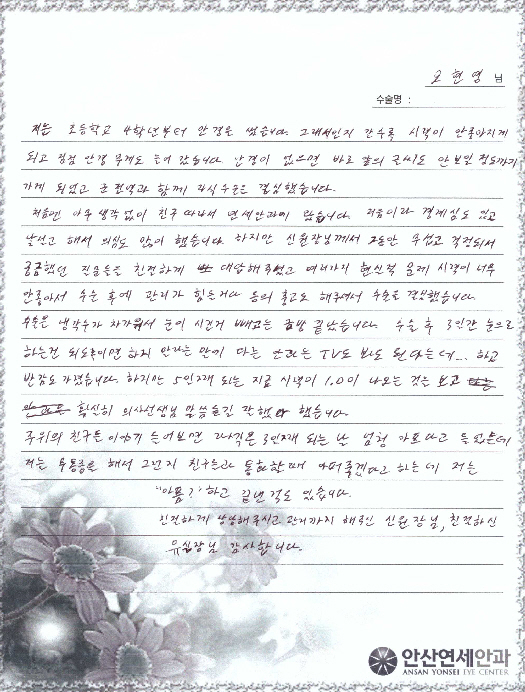 오현영 님
수술명 :
저는 초등학교 4학년부터 안경을 썼습니다. 그래서인지 갈수록 시력이 안좋아지게
되고 점점 안경 무게도 늘어 갔습니다. 안경이 없으면 바로 앞의 글씨도 안보일 정도까지
가게 되었고 군전역과 함께 라식수술은 결심했습니다.
처음엔 아무 생각없이 친구 따라서 연세안과에 왔습니다. 처음이라 경계심도 있고
낯설고 해서 의심도 많이 했습니다. 하지만 신원장님께서 그동안 무섭고 걱정되서
궁금했던 질문들은 친절하게 대답해주셨고 여러가지 현실적 문제 시력이 너무
안좋아서 수술 후에 관리가 힘든거다 등의 충고도 해주셔서 수술을 결심했습니다.
수술은 냉각수가 차가워서 눈이 시린거 빼고는 금방 끝났습니다. 수술 후 3일간 눈으로
하는건 되도록이면 하지 말라는 말에 다는 안과는 TV도 봐도 된다는데... 하고
반감도 가졌습니다. 하지만 5일째 되는 지금 시력이 1.0이 나오는 것을 보고
확실히 의사선생님 말씀듣길 잘했 했습니다.
주위의 친구들 이야기 들어보면 라식은 3일째 되는 날 엄청 아프다고 들었는데
저는 무통증로 해서 그런지 친구들과 통화할때 아파죽겠다고 하는데 저는
"아픔?" 하고 끝낸적도 있습니다.
친절하게 상담해주시고 관리까지 해주신 신원장님, 친절하신
유실장님 감사합니다.
안산연세안과
ANSAN YONSEI EYE CENTER